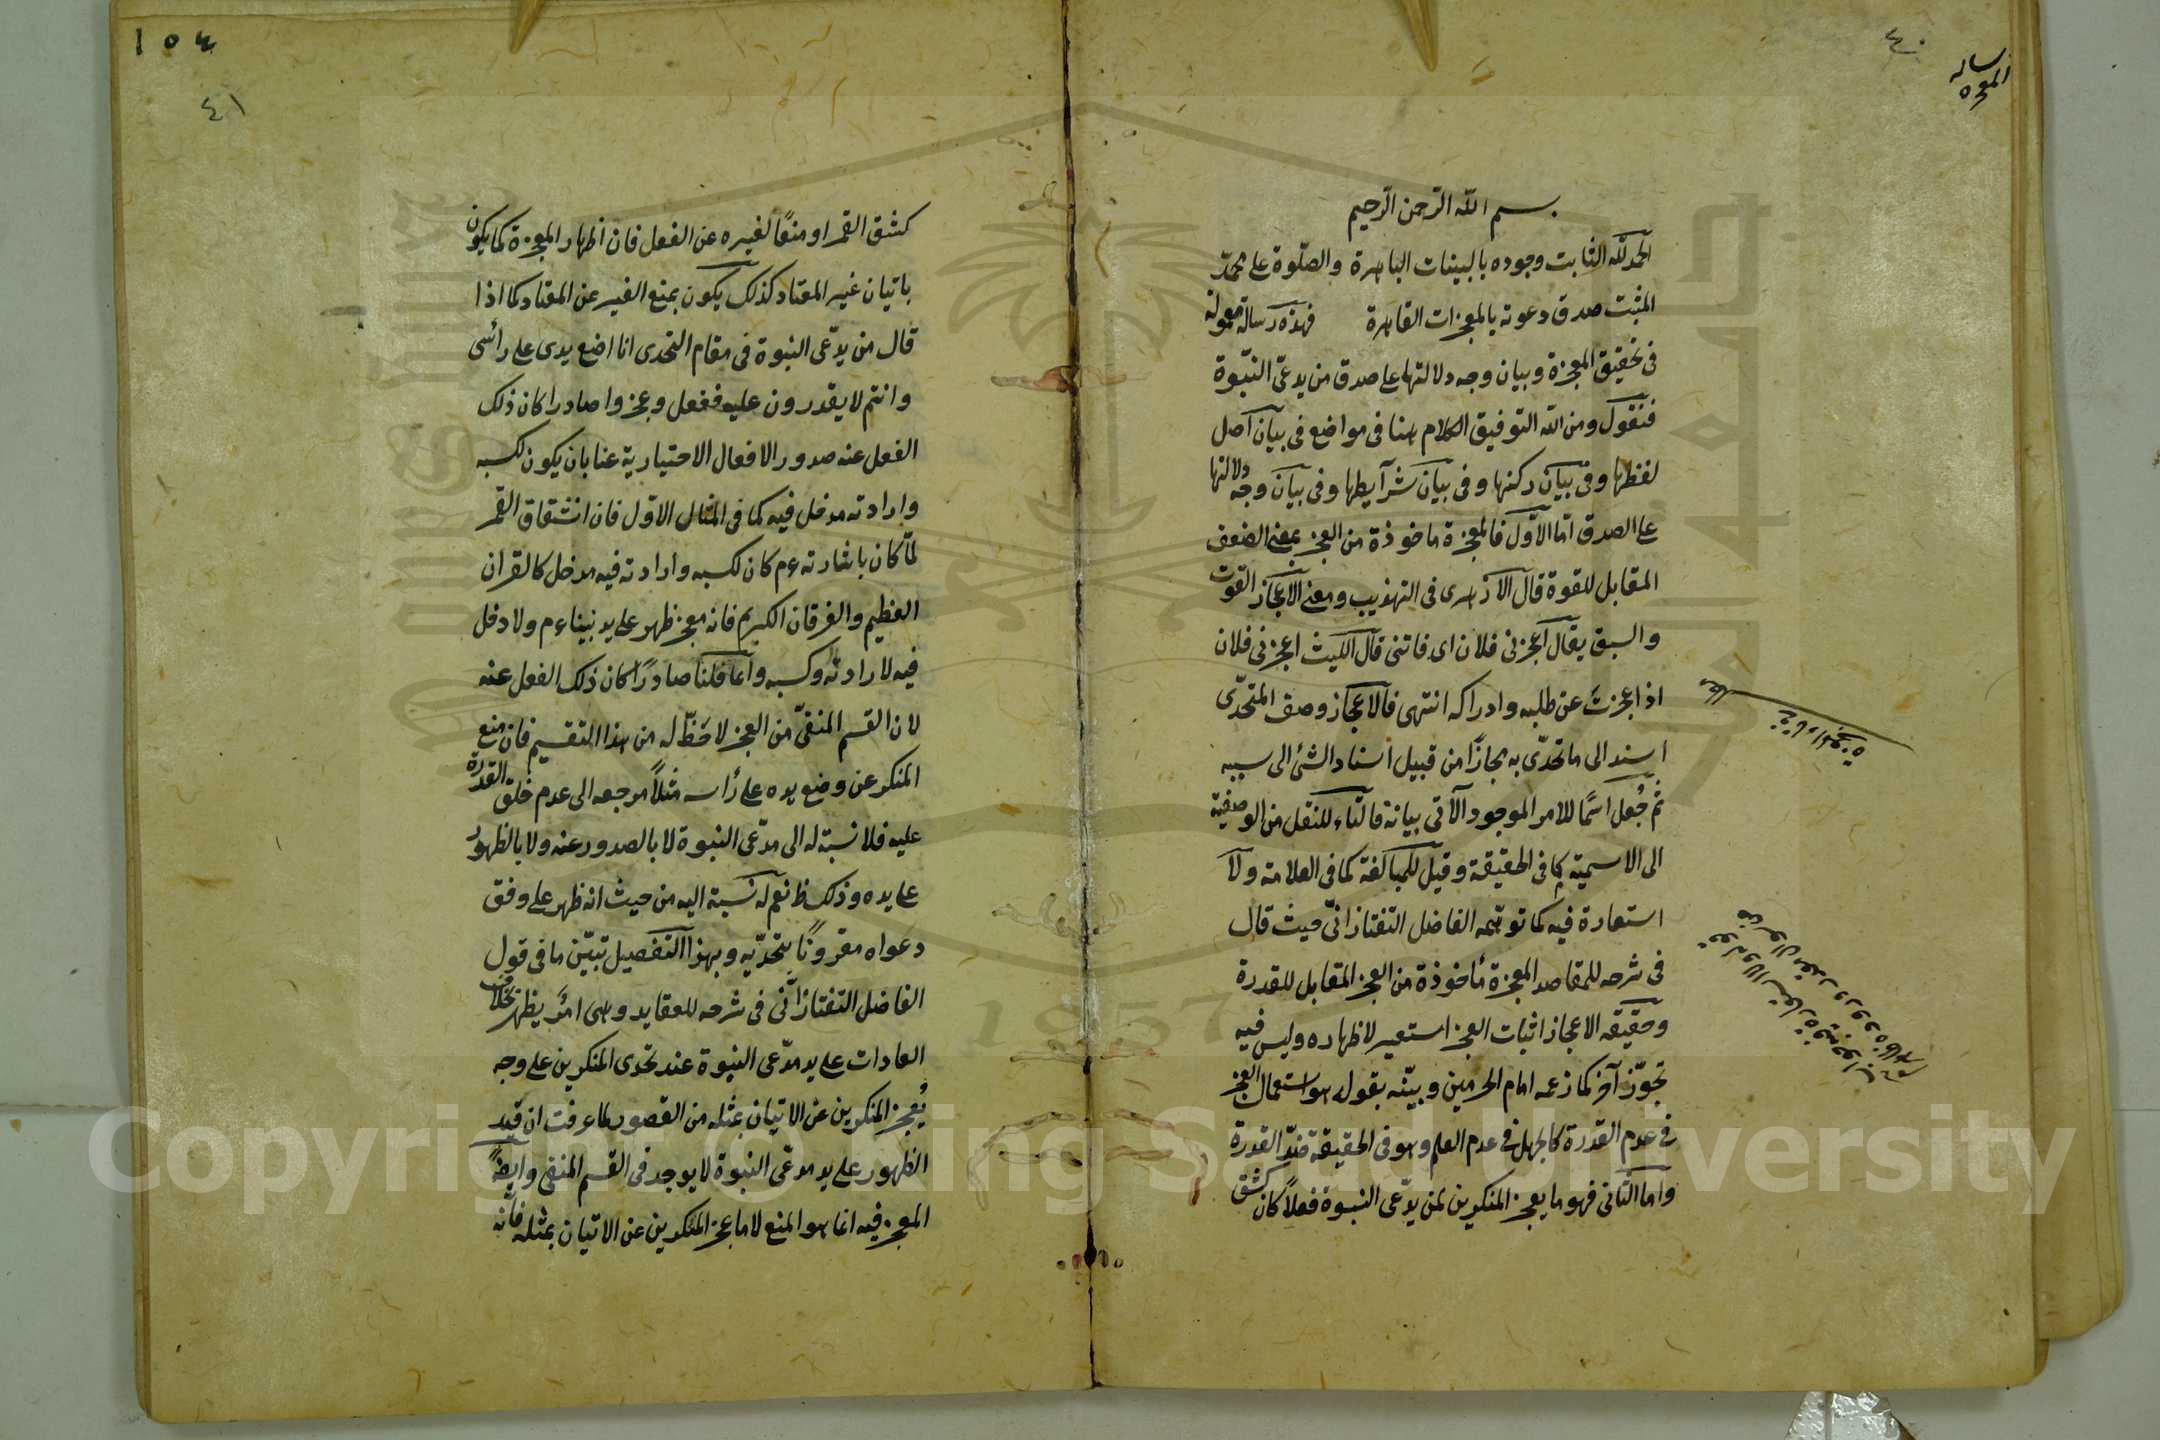 ٤٠
رساله
المعجزه
بسم الله الرّحمن الرّحيم
الحمد لله الثابت وجوده بالبينات الباهرة والصّلوة على محمّد
المثبت صدق دعوته بالمعجزات القاهرة فهذه رسالة معمولة
فى تحقيق المعجزة وبيان وجه دلالتها على صدق من يدعى النبّوة
فنقول ومن الله التوفيق الكلام هنا فى مواضع فى بيان اصل
لفظها وفى بيان ركنها وفى بيان شرآيطها وفى بيان وجه دلالتها
على الصدق امّا الاوّل فالمعجزة ماخوذة من العجز بمعنى الضعف
المقابل للقوة قال الازهرى فى التهذيب ومعنى الاعجاز الفوت
والسبق يقال اعجزنى فلان اى فاتنى قال الليث اعجزنى فلان
اذا عجزت عن طلبه وادراكه انتهى فالاعجاز وصف المتحدّى
اسند الى ما تحدّى به مجازًا من قبيل اسناد الشئ الى سببه
ثم جُعل اسمًا للامر الموجود الآتى بيانه فالتّاء للنقل من الوصفية
الى الاسمية كما فى الحقيقة وقيل للمبالغة كما فى العلامة ولا
استعارة فيه كما توهّمه الفاضل التفتازانّى حيث قال
فى شرحه للمقاصد المعجزة مأخوذة من العجز المقابل للقدرة
وحقيقه الاعجاز اثبات العجز استعير لاظهاره وليس فيه
تجوّز آخر كما زعمه امام الحرمين وبيّنه بقوله هو استعمال العجز
فى عدم القدرة كالجهل فى عدم العلم وهو فى الحقيقة ضدّ القدرة
واما الثانى فهو ما يعجز المنكرين لمن يدّعى النبوة فعلاً كان كشق
١٥٤
٤١
كشق القمر او منعًا لغيره عن الفعل فان اظهار المعجزة كما يكون
باتيان غير المعتاد كذلك يكون بمنع الغير عن المعتاد كما اذا
قال من يدّعى النبوة فى مقام التحدى انا اضع يدى على رأسى
وانتم لا يقدرون عليه ففعل وعجزوا صادرا كان ذلك
الفعل عنه صدور الافعال الاختيارية عنا بان يكون لكسبه
وارادته مدخل فيه كما فى المثال الاوّل فان انشقاق القمر
لمّا كان باشارته ءم كان لكسبه وارادته فيه مدخل كالقران
العظيم والفرقان الكريم فانه معجز ظهر على يد نبيناءم ولا دخل
فيه لارادته وكسبه وانما قلنا صادرًا كان ذلك الفعل عنه
لان القسم المنفىّ من العجز لا حَظّ له من هذا التقسيم فان منع
المنكر عن وضع يده على رأسه مثلاً مرجعه الى عدم خلق القدرة
عليه فلا نسبة له الى مدّعى النبوة لا بالصدور عنه ولا بالظهور
على يده وذلك ظ نعم له نسبة اليه من حيث انه ظهر على وفق
دعواه مقرونًا بتحدّيه وبهذا التفصيل تبيّن ما فى قول
الفاضل التفتازانّى فى شرحه للعقايد وهى امرٌ يظهر بخلاف
العادات على يد مدّعى النبوة عند تحدى المنكرين على وجه
يُعجز المنكرين عن الاتيان بمثله من القصور لما عرفت ان قيد
الظهور على يد مدعى النبوة لا يوجد فى القسم المنفى وايضًا
المعجز فيه انما هو المنع لا ما عجز المنكرين عن الاتيان بمثله فانه